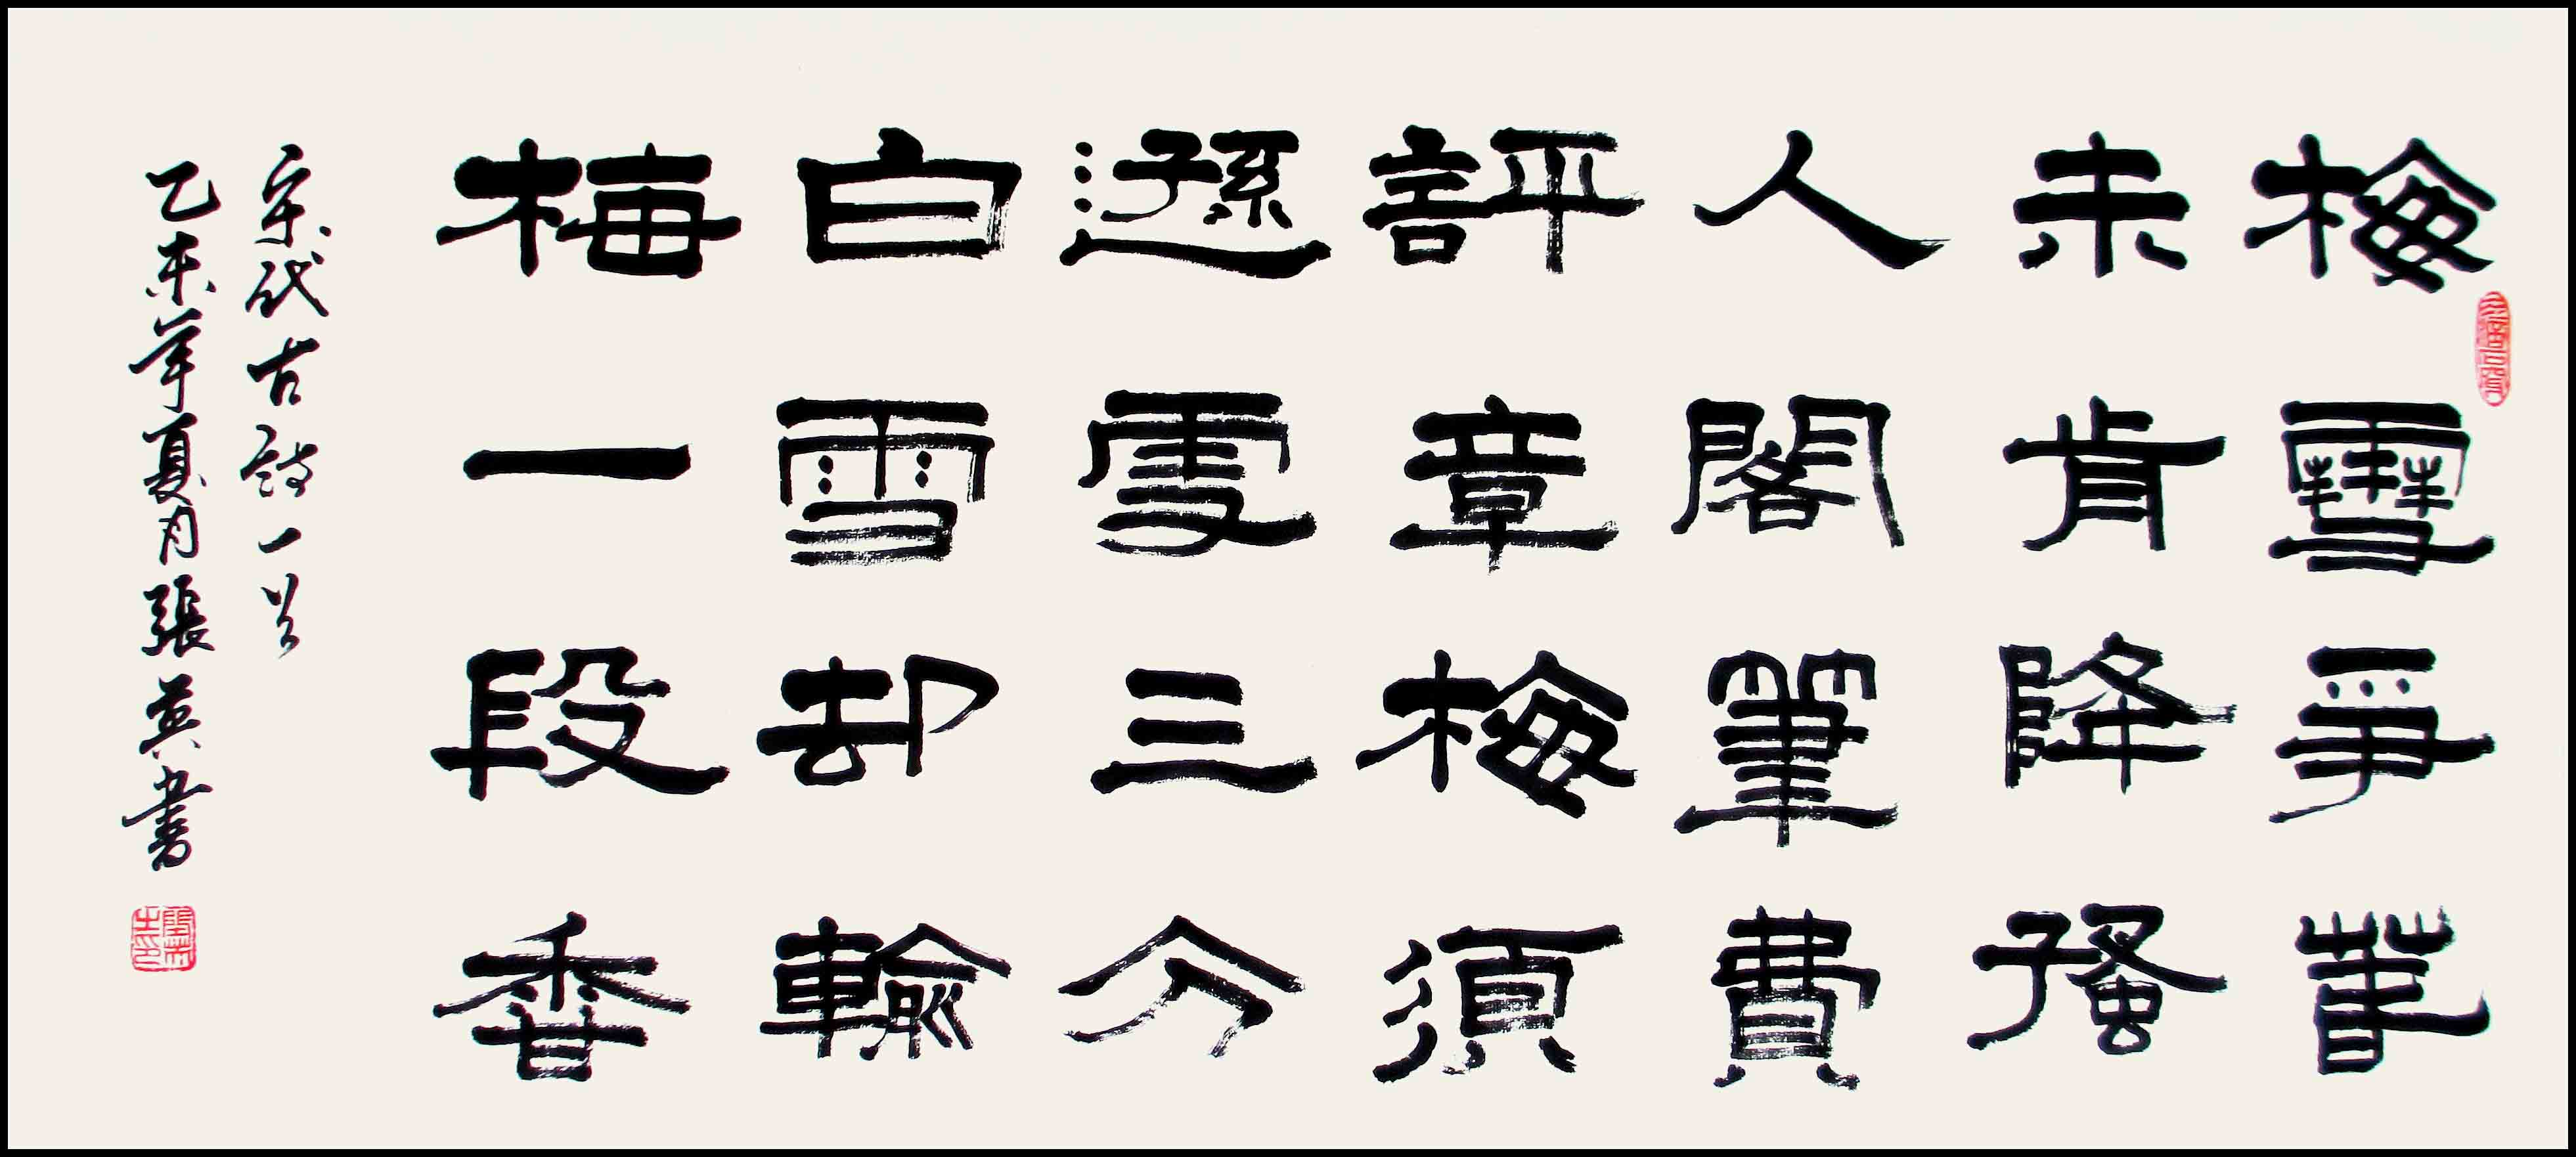 梅雪爭春
未肯降搔
人閣筆費
評章梅須
遜雪三分
白雪却輸
梅一段香
宋代古詩一首
乙未年夏月張英書
張英之印